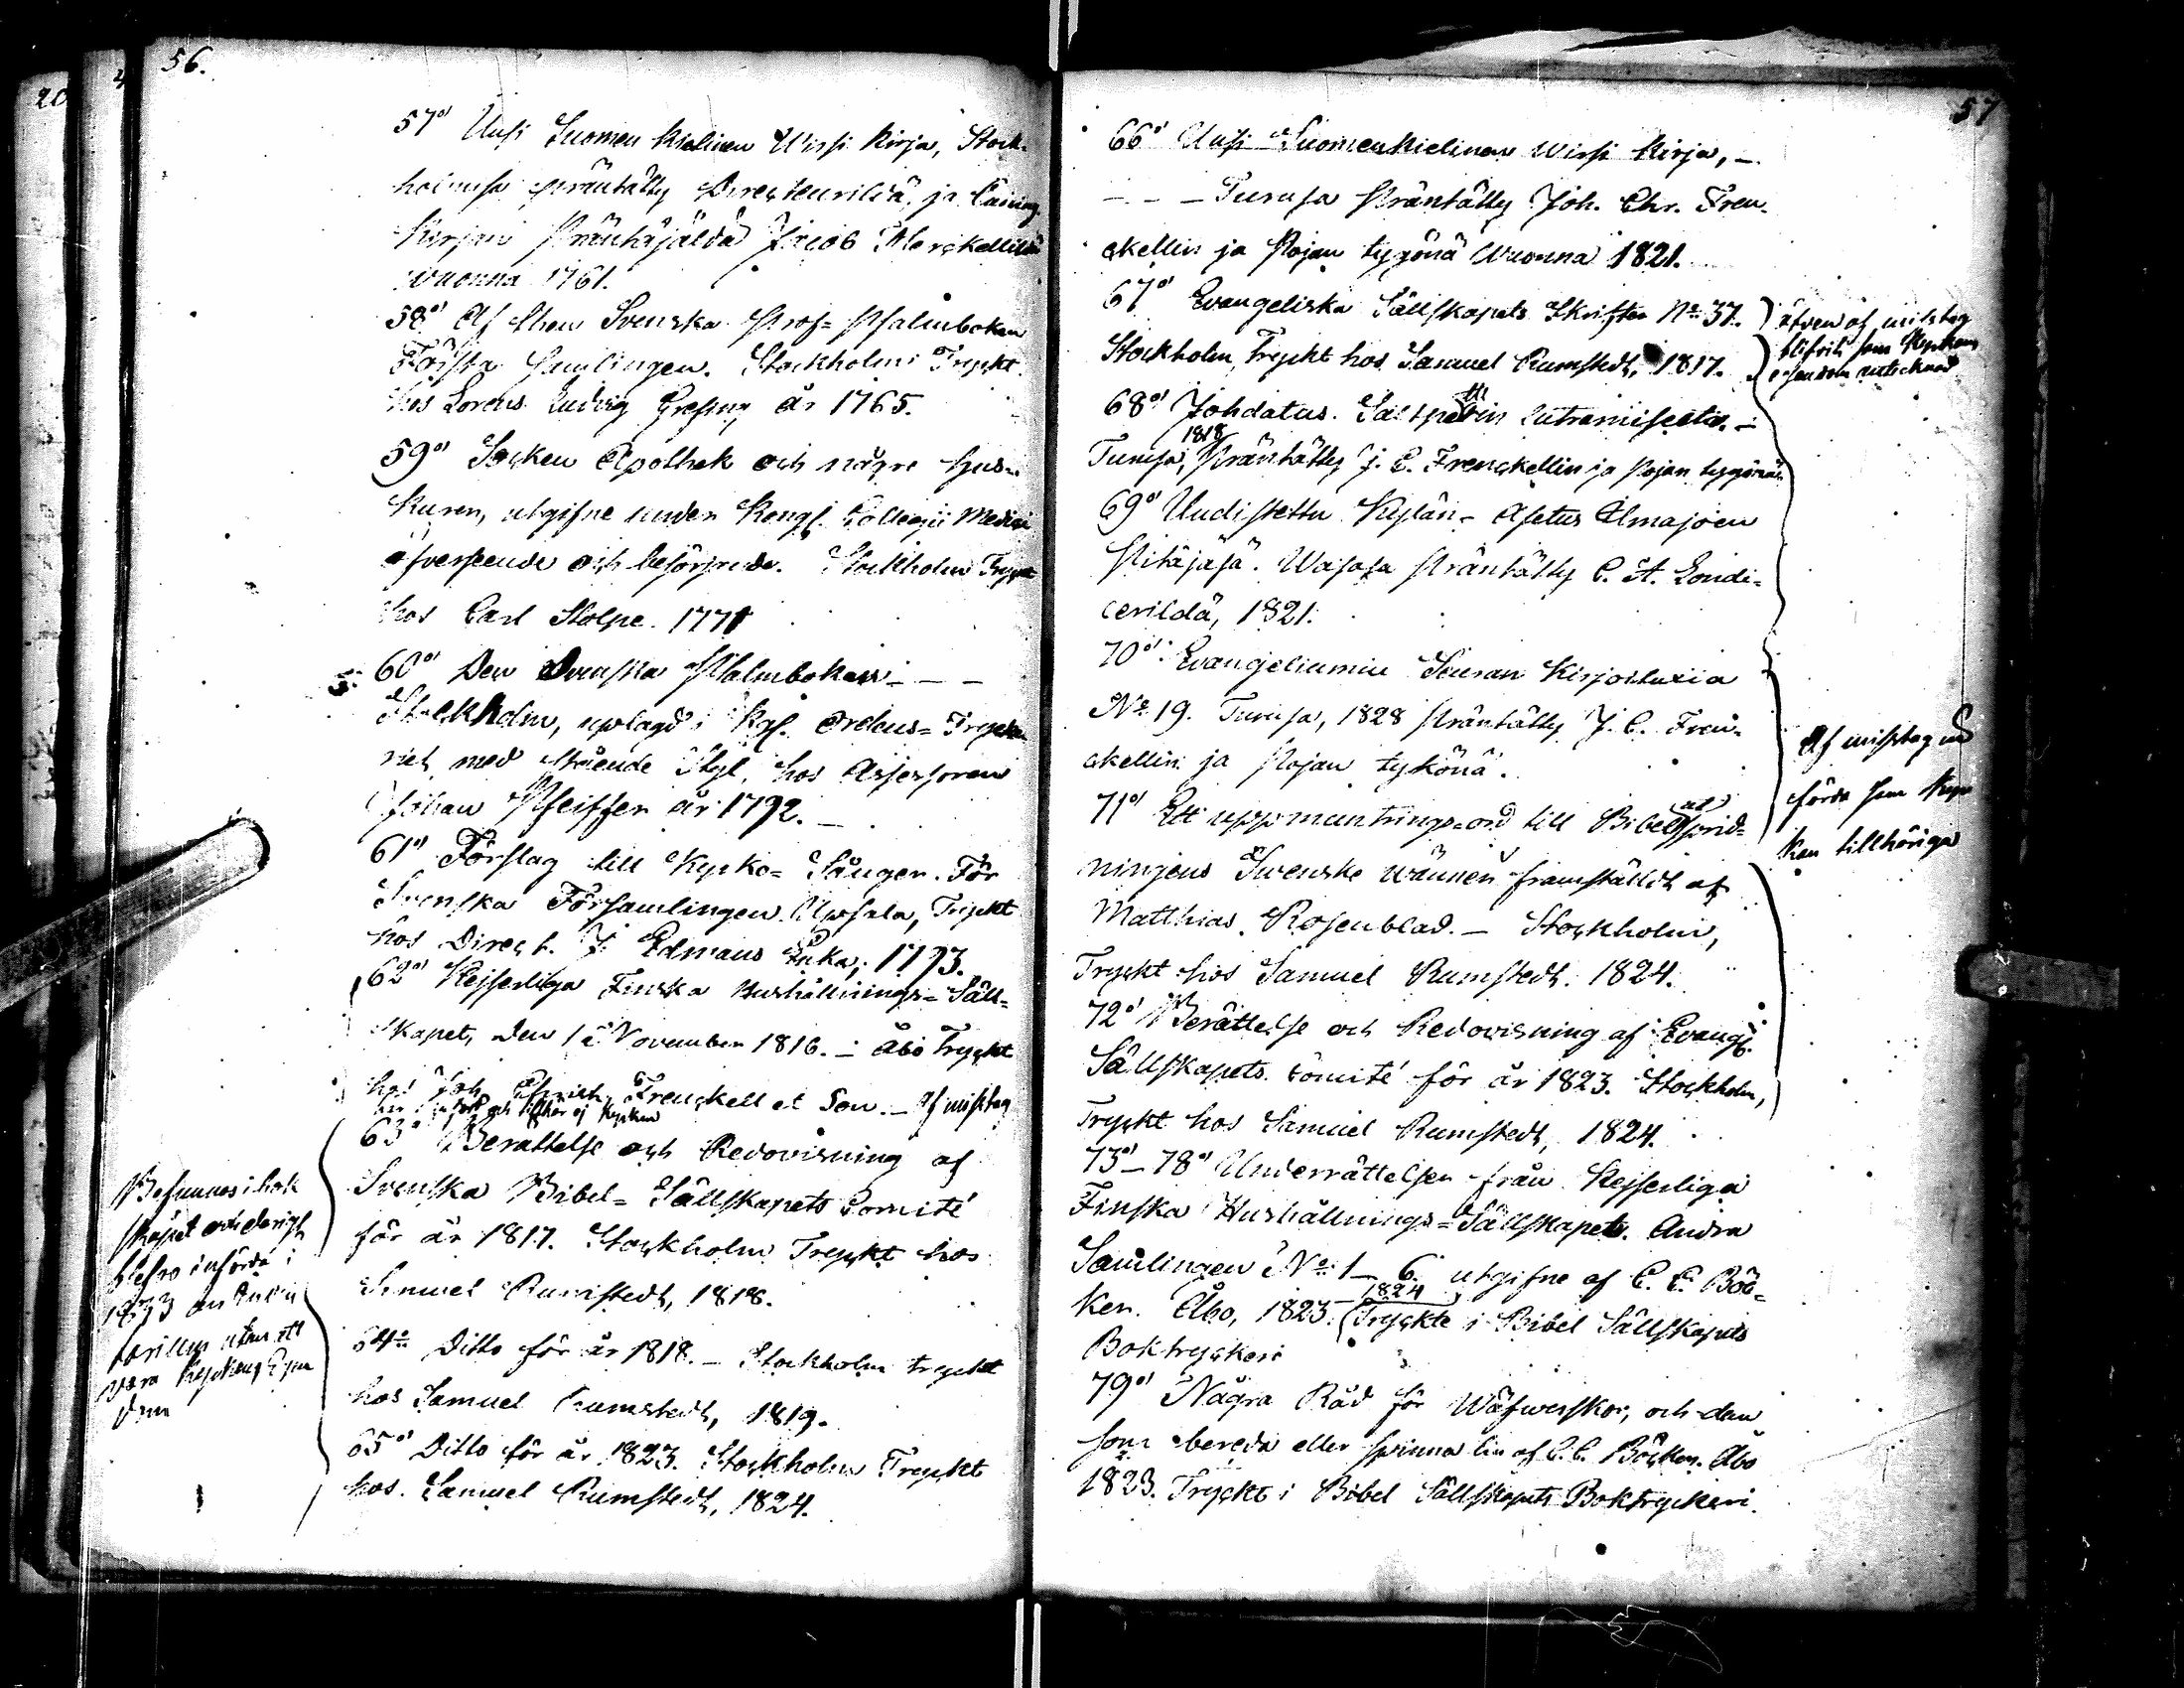 56.
57:o Uusi Suomen kielinen Wirsi Kirja, Stock-
holmisa präntätty Directeurildä, ja Cuning.
Kirjan Präntäjäldä Jacob Merckellildä
wuonna 1761.
58:o Af then Svenska Prof-Psalmboken
Första Samlingen. Stockholm Tryckt
hos Lorens Ludvig Grefing år 1765.
59:o Socken Apothek och någre Hus-
Kurer, utgifne under Kongl. Collegii Medici
öfverseende och besörjande. Stockholm Tryckt
hos Carl Stolpe. 1771
60:o Den Svenska Psalmboken - - -
Stockholm, uplagd i Kgl. Ordens-Trycke
riet med stående Styl, hos Assessoren
Johan Pfeiffer år 1792. -
61:o Förslag till Kyrko-Sånger. För
Svenska Församlingen. Upsala, Tryckt
hos Direct. J. Edmans Enka, 1793.
62:o Kejserliga Finska Hushållnings-Säll-
skapet, den 1 November 1816. - Åbo Tryckt
hos Joh. Christ. Frenckell et Son. - Af misstag
här infördt och tillhör ej Kyrkan
63:o Berättelse och Redovisning af
Svenska Bibel-Sällskapets Comité
för år 1817. Stockholm Tryckt hos
Samuel Rumstedt, 1818.
64:o Ditto för år 1818. - Stockholm tryckt
hos Samuel Rumstedt, 1819.
65:o Ditto för år 1823. Stockholm Tryckt
hos Samuel Rumstedt, 1824.
Befunnos i bok
skåpet och
blefvo införda i
1833 års
utan att
vara Kyrkans Egen
dom
57
66:o Uusi Suomenkielinen Wirsi Kirja, -
- - - Turusa Präntätty Joh. Chr. Fren-
ckellin ja Pojan tygönä Wuonna 1821.
67:o Evangeliska Sällskapets Skrifter No 37.
Stockholm, Tryckt hos Samuel Rumstedt, 1817.
äfven af misstag
blifvit som Kyrkans
egendom antecknad
68:o Johdatus Saltpettin lutramisesta. -
Turusa, 1818 Präntätty J. C. Frenckellin ja Pojan tygönä
69:o Uudistettu Kylän-Asetus Ilmajoen
Pitäjäsä. Wasasa Präntätty C. A. Londi-
cerildä, 1821.
70:o Evangeliumin Seuran Kirjoituxia
No 19. Turusa, 1828 Präntätty J. C. Fren-
ckellin ja Pojan tykönä.
71:o Ett uppmuntrings-ord till Bibel sprid-
ningens Swenske wänner framställdt af
Matthias Rosenblad. - Stockholm,
Tryckt hos Samuel Rumstedt. 1824.
72:o Berättelse och Redovisning af Evang.
Sällskapets Comité för år 1823. Stockholm,
Tryckt hos Samuel Rumstedt, 1824.
73:o - 78:o Underrättelser från Kejserliga
Finska Hushållnings-Sällskapet. Andra
Samlingen No 1 - 6. utgifne af C. C. Böc-
ker. Åbo, 1823 - 1824 Tryckte i Bibel Sällskapets
Boktryckeri
79:o Några Råd för Wäfwerskor, och dem
som bereda eller spinna lin af C. C. Böcker. Åbo
1823. Tryckt i Bibel Sällskapets Boktryckeri.
Af misstag
införda som Kyr
kan tillhöriga